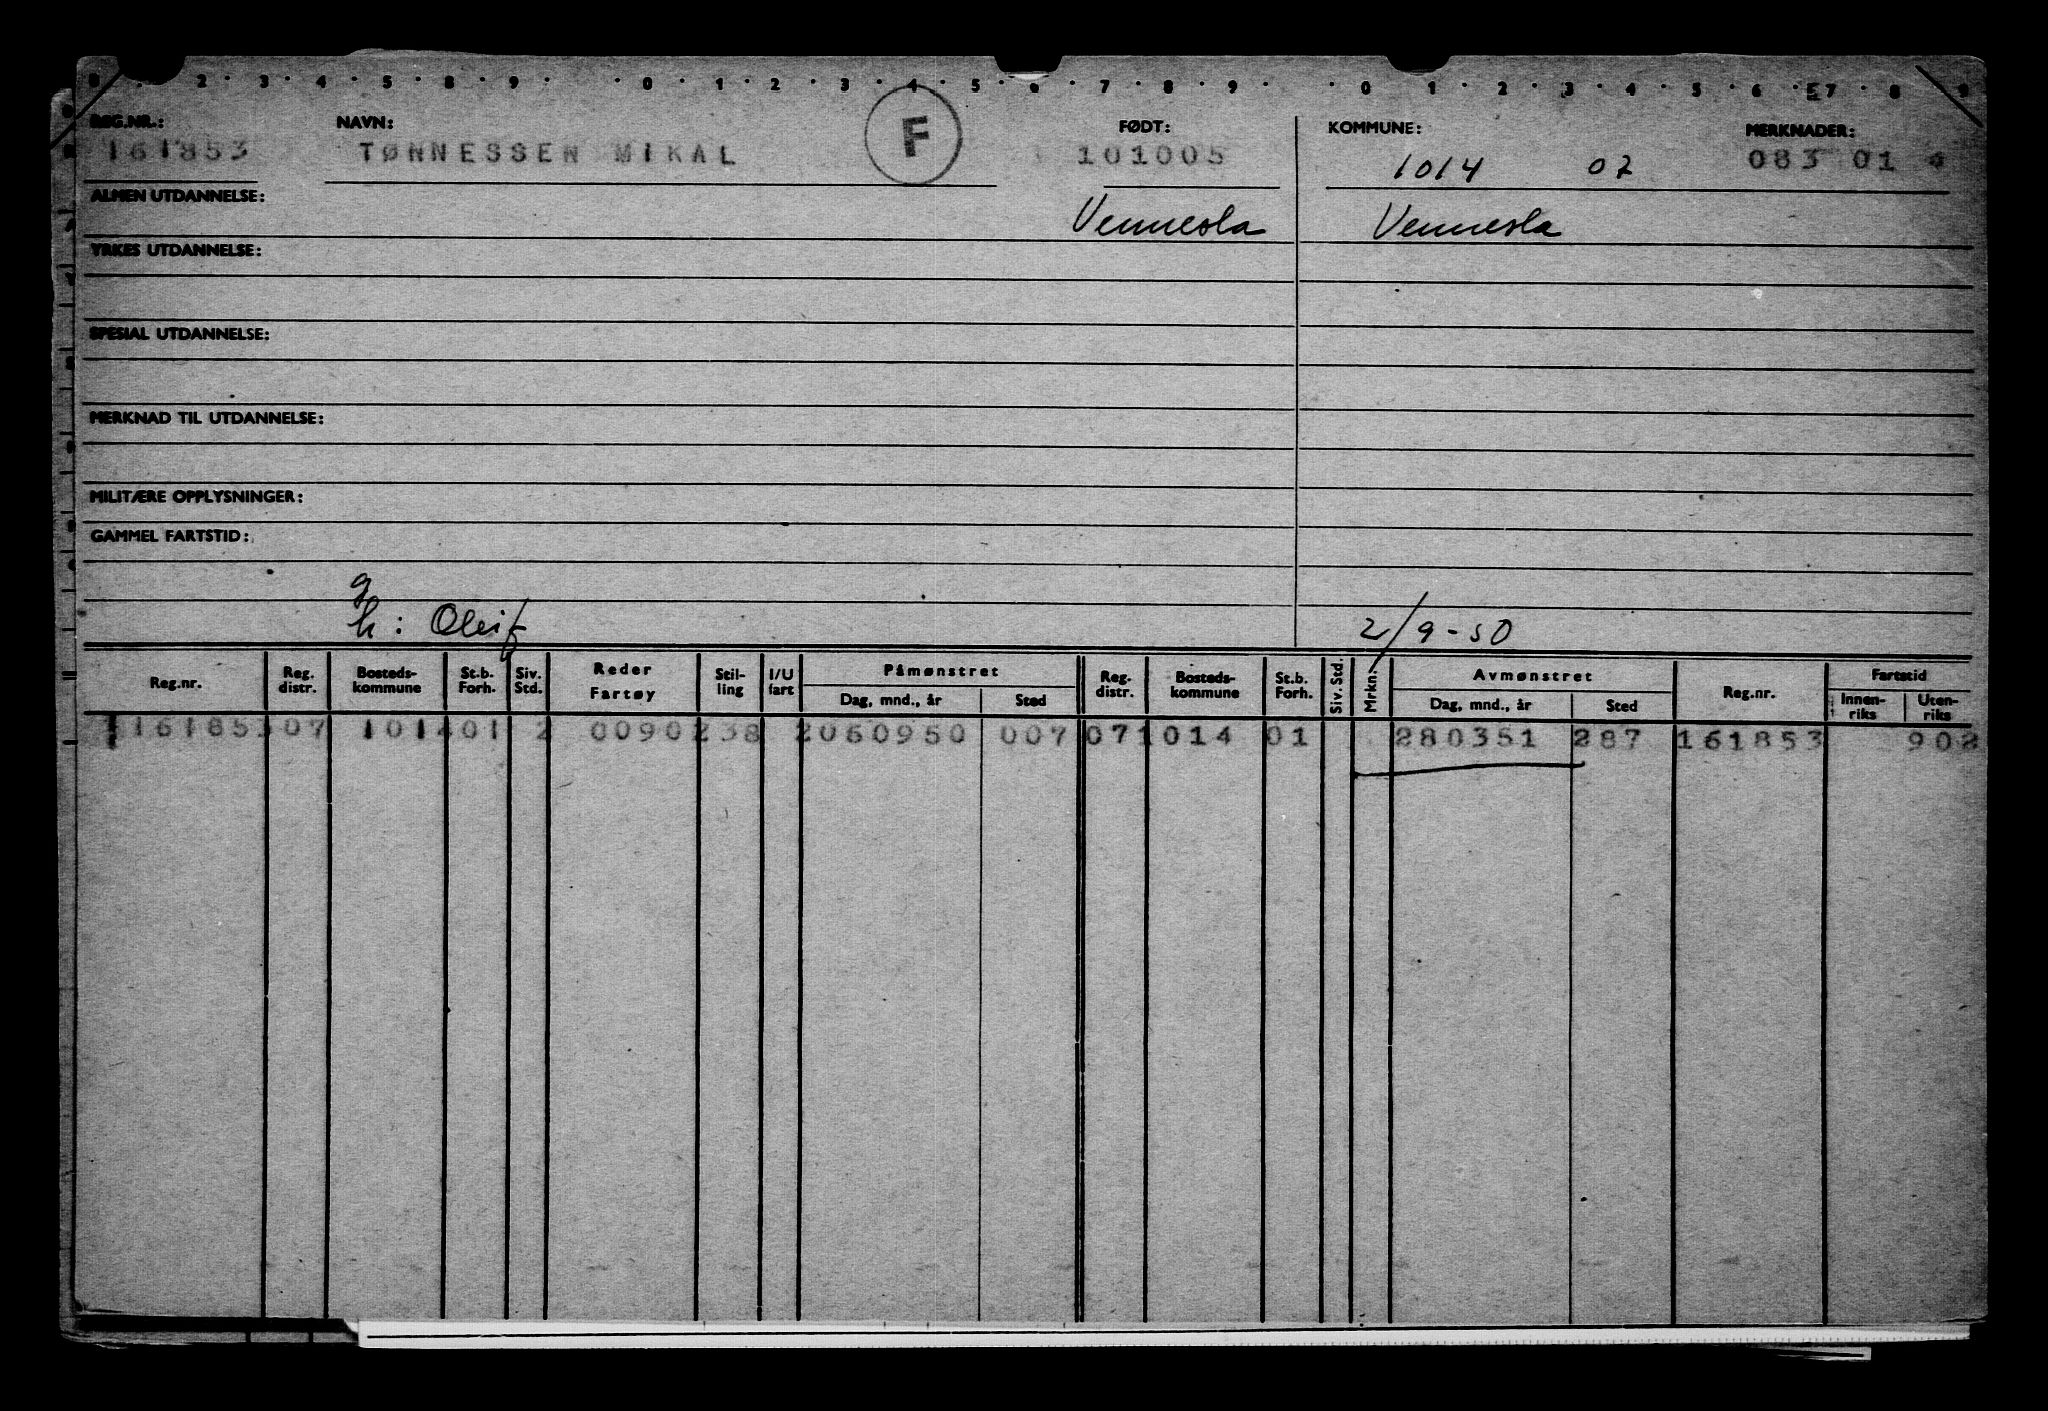 0 2 3 4 5 8 9 0 1 2 3 4 5 6 7 8 9 0 1 2 3 4 5 6 7 8 9
REG.NR.: NAVN: FØDT: KOMMUNE: MERKNADER:
161853 TØNNESSEN MIKAL F 101005 1014 02 083 01
ALMEN UTDANNELSE: Vennesla Vennesla
YRKES UTDANNELSE:
SPESIAL UTDANNELSE:
MERKNAD TIL UTDANNELSE:
MILITÆRE OPPLYSNINGER:
GAMMEL FARTSTID:
g
h: 2/9-50
Reg.nr. Reg. distr. Bosteds-kommune St.b. Forh. Siv. Std. Reder Fartøy Stil-ling I/U fart Påmønstret Dag, mnd., år Sted Reg. distr. Bosteds-kommune St.b. Forh. Siv. Std. Mrkn. Avmønstret Dag, mnd., år Sted Reg.nr. Fartstid Innen-riks Uten-riks
161853 07 1014 01 2 0090 238 2 060950 007 07 1014 01 280351 287 161853 902